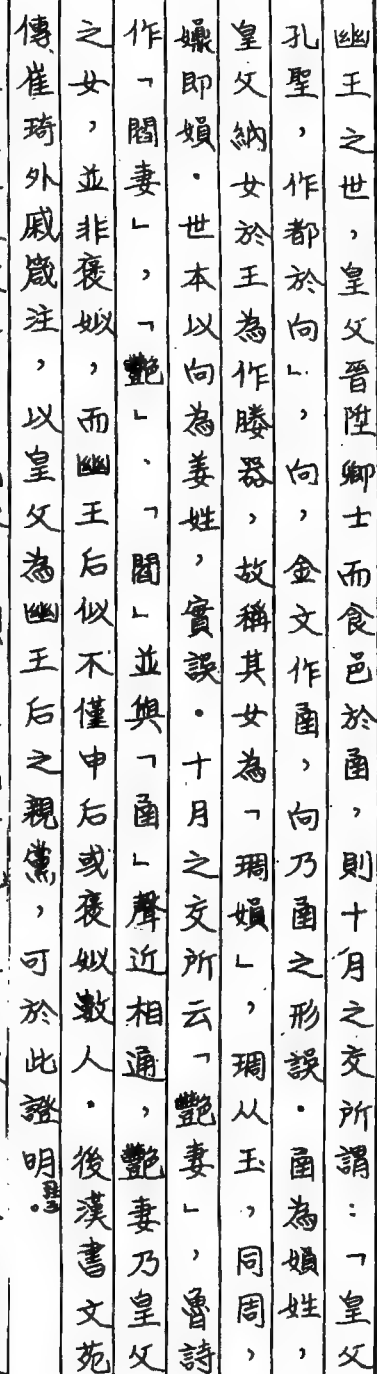 幽王之世，皇父晉陞卿士而食邑於圅，則十月之交所謂：「皇父
孔聖，作都於向」，向，金文作圅，向乃圅之形誤．圅為媍姓，
皇父納女於王為作媵器，故稱其女為「琱媍」，琱从玉，同周，
嬶即媍．世本以向為姜姓，實誤．十月之交所云「艷妻」，魯詩
作「閻妻」，「艷」、「閻」並與「圅」聲近相通，艷妻乃皇父
之女，並非褒姒，而幽王后似不僅申后或褒姒數人．後漢書文苑
傳崔琦外戚箴注，以皇父為幽王后之親黨，可於此證明註3。